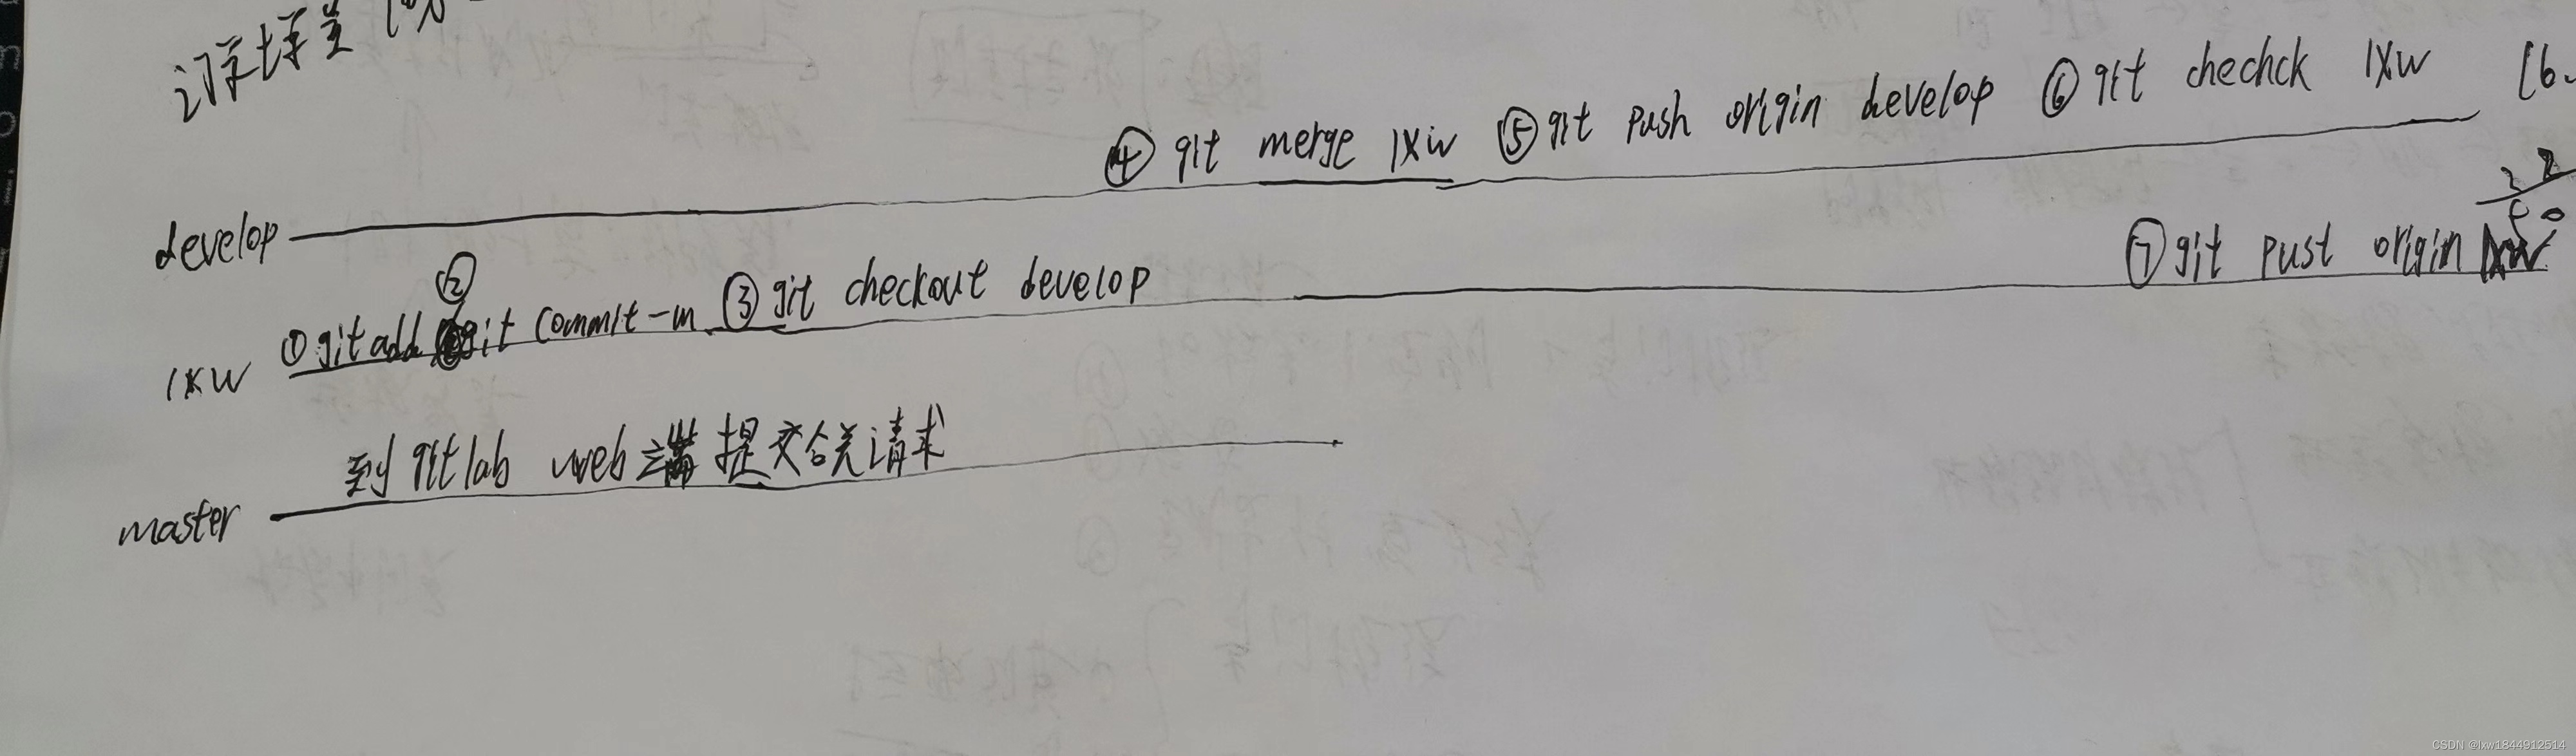 ④ git merge lxw ⑤ git push origin develop ⑥ git chechck lxw
develop
⑦ git pust origin lxw
②
① git add git commit -m ③ git checkout develop
lxw
到 gitlab web 端 提交合关请求
master
CSDN @lxw1844912514